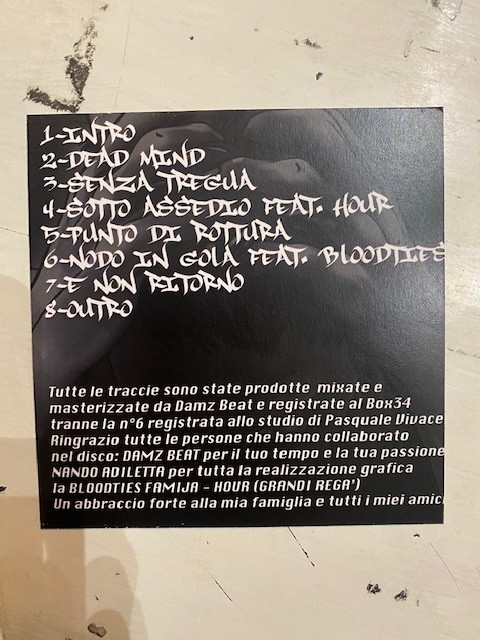 1-INTRO
2-DEAD MIND
3-SENZA TREGUA
4-SOTTO ASSEDIO FEAT. HOUR
5-PUNTO DI ROTTURA
6-NODO IN GOLA FEAT. BLOODTIES
7-E NON RITORNO
8-OUTRO
Tutte le traccie sono state prodotte mixate e
masterizzate da Damz Beat e registrate al Box34
tranne la n°6 registrata allo studio di Pasquale Vivace
Ringrazio tutte le persone che hanno collaborato
nel disco: DAMZ BEAT per il tuo tempo e la tua passione
NANDO ADILETTA per tutta la realizzazione grafica
la BLOODTIES FAMIJA - HOUR (GRANDI REGA')
Un abbraccio forte alla mia famiglia e tutti i miei amici